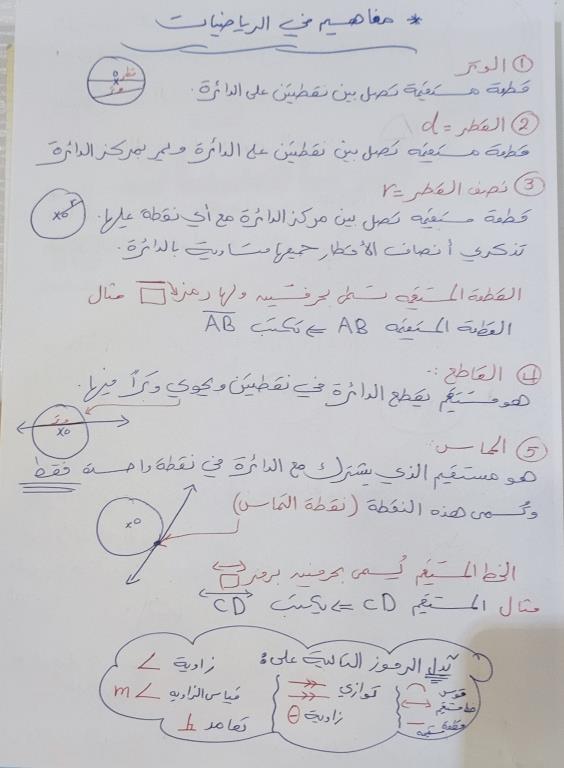 * مفاهيم في الرياضيات
① الوتر
قطعة مستقيمة تصل بين نقطتين على الدائرة.
قطر
وتر
② القطر = d
قطعة مستقيمه تصل بين نقطتين على الدائرة ولمر بمركز الدائرة
③ نصف القطر = r
قطعة مستقيمه تصل بين مركز الدائرة مع أي نقطة عليها.
r
xo
تذكري أنصاف الأقطار جميعها متساوية بالدائرة.
القطعة المستقيمه تسمى بحرفين ولها رمز □ مثال
القطعة المستقيمه AB ⇐ تكتب AB
④ القاطع :
هو مستقيم يقطع الدائرة في نقطتين ويحوي وتراً فيها.
وتر
xo
⑤ المماس :
هو مستقيم الذي يشترك مع الدائرة في نقطة واحدة فقط
وتسمى هذه النقطة (نقطة التماس)
xo
الخط المستقيم يُسمى بحرفين برمز □
مثال المستقيم CD ⇐ يكتب CD
تدل الرموز التالية على :
قوس ⌒
خط مستقيم ↔
قطعة مستقيمة —
توازي
زاوية θ
زاوية ∠
قياس الزاويه m∠
تعامد